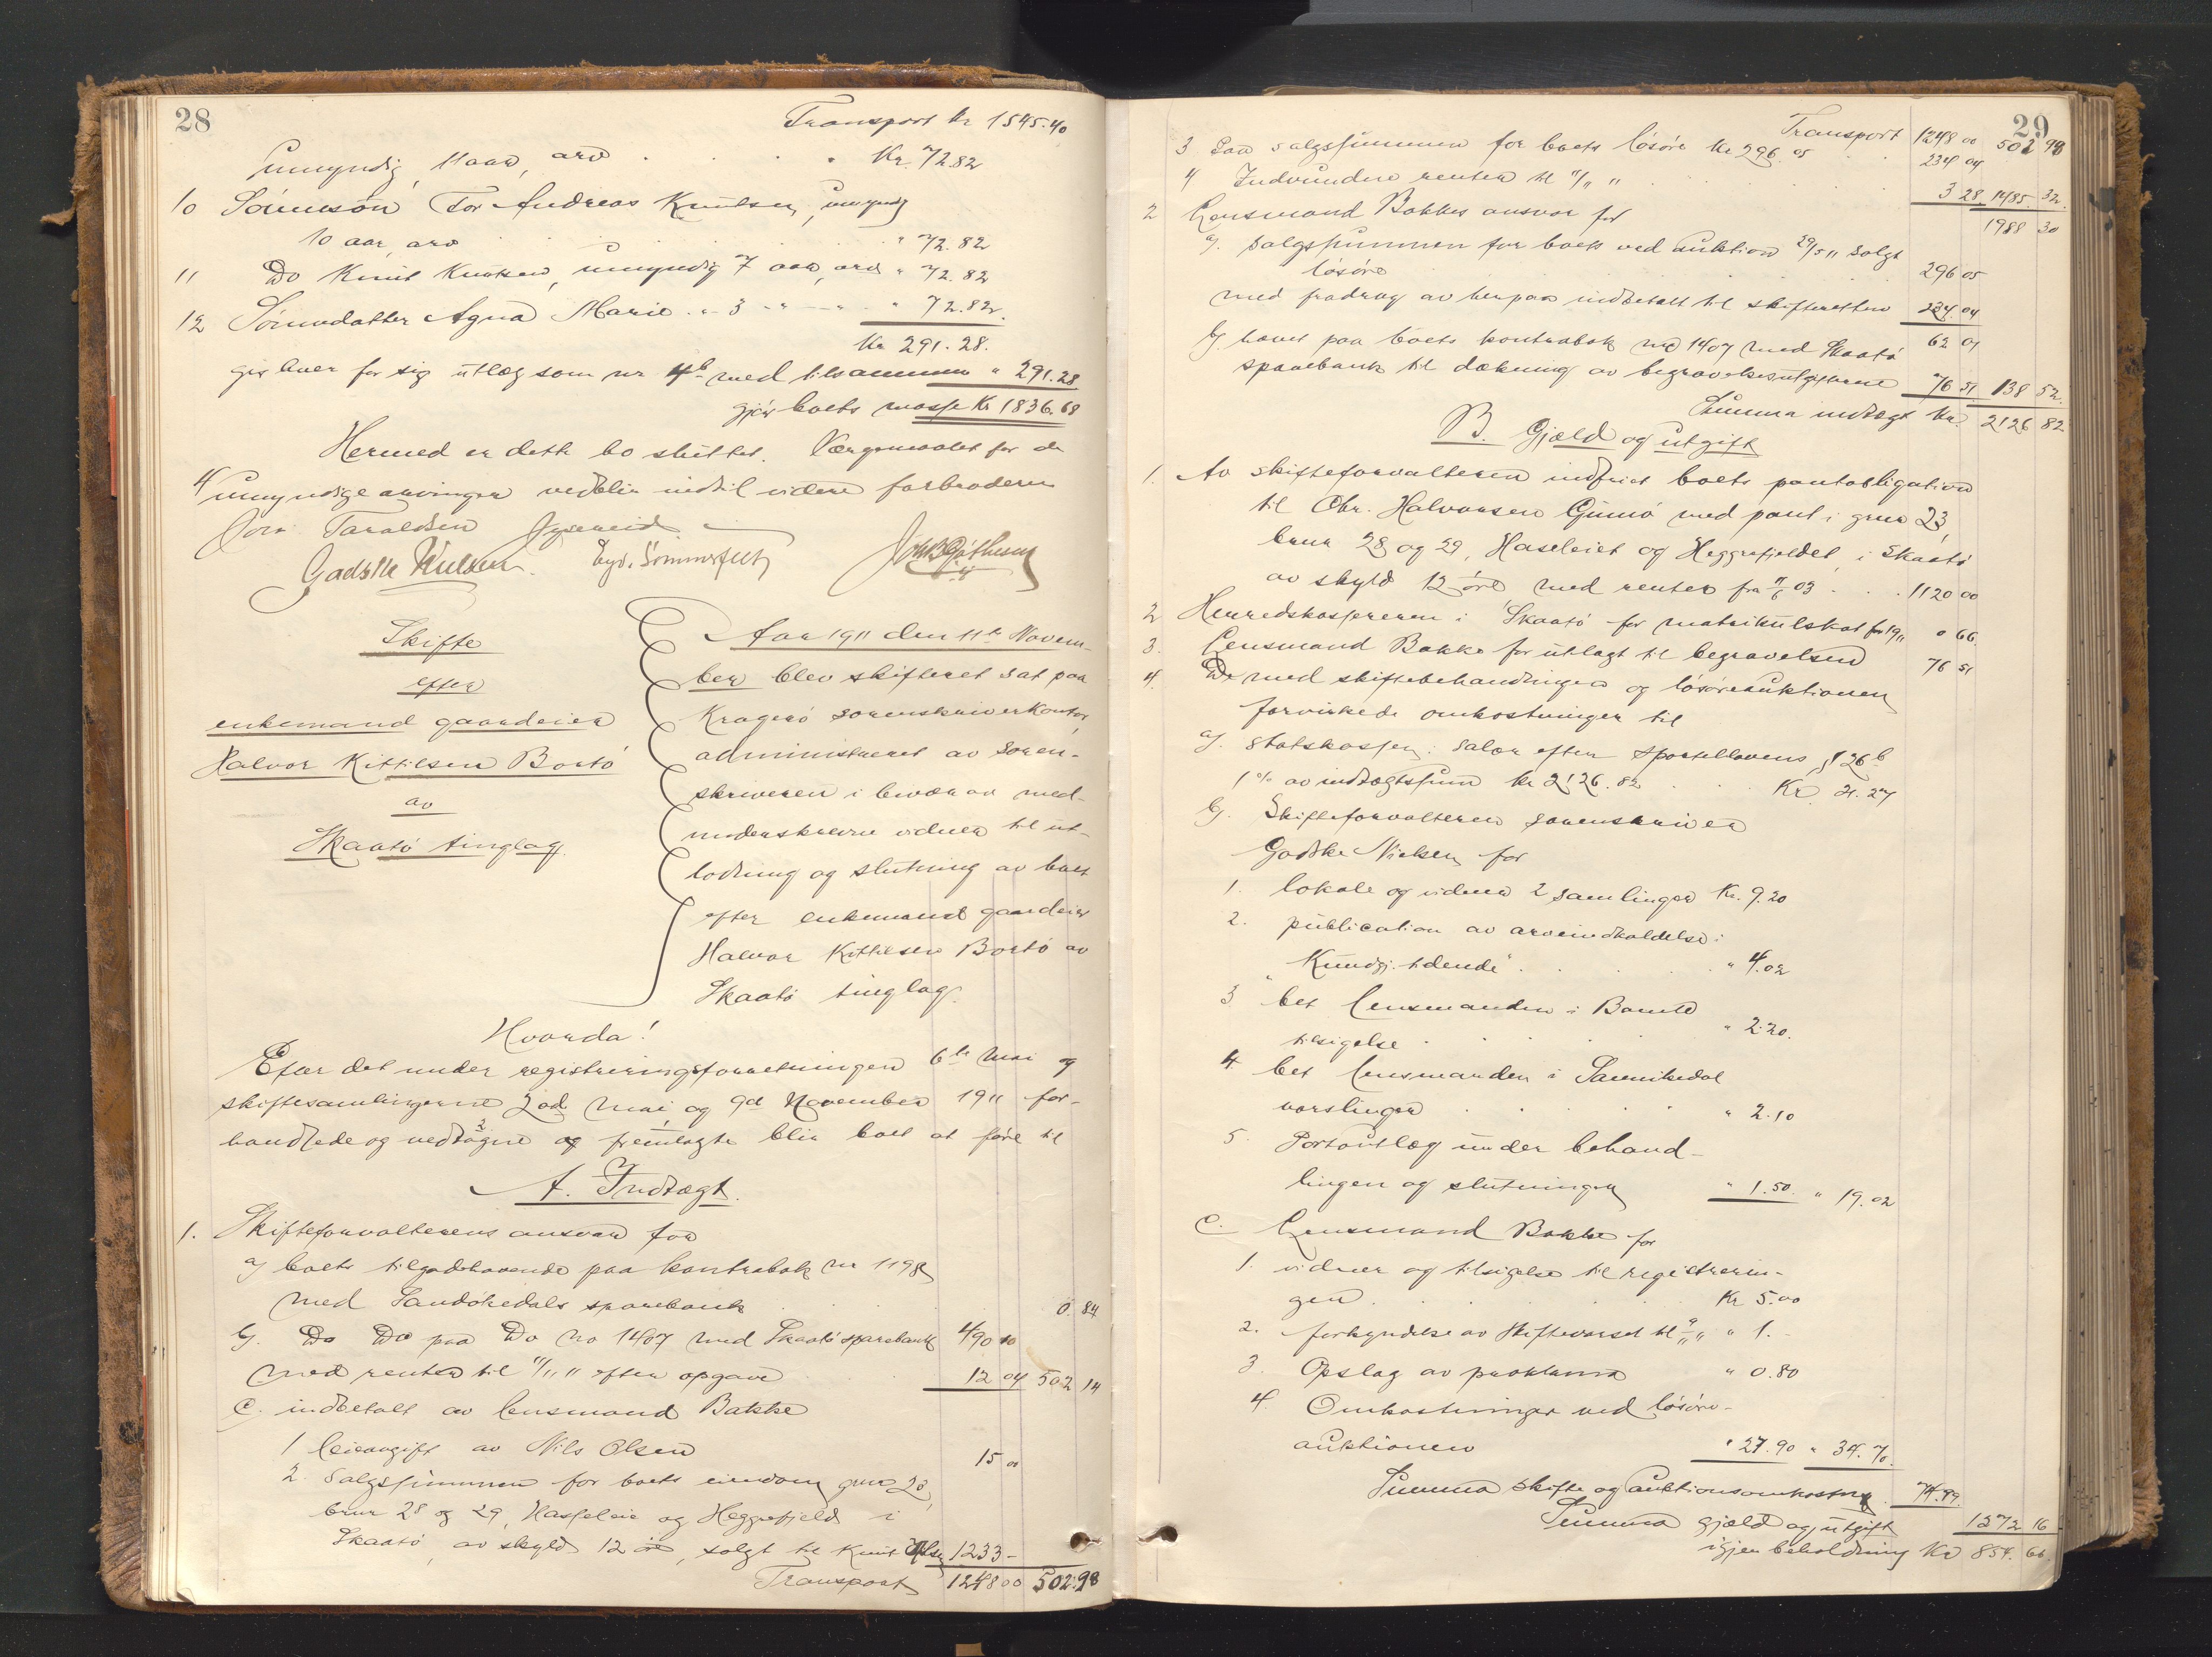 28
Transport kr 1545.40
umyndig 11 aar, arv . . . . Kr. 72.82
10 Sønnesøn Tor Andreas Knutsen, umyndig
10 aar, arv . . . . . " 72.82
11 Do Knut Knutsen, umyndig 7 aar, arv " 72.82
12 Sønnedatter Agna Marie . " 3 - " - " - " 72.82.
Kr 291.28.
gis hver for sig utlæg som nr 4b med tilsammen " 291.28
gjør boets masse Kr 1836.68
Hermed er dette bo sluttet. Værgemaalet for de
4 umyndige arvinger vedblir indtil videre farbroderen
Jørn Taraldsen
Godske Nielsen. Eyv. Sommerfelt
Skifte
efter
enkemand gaardeier
Halvor Kittilsen Bortø
av
Skaatø tinglag.
Aar 1911 den 11te Novem-
ber blev skifteret sat paa
Kragerø sorenskriverkontor
administreret av soren-
skriveren i overvær av med-
underskrevne vidner til ut-
lodning og slutning av boet
efter enkemand gaardeier
Halvor Kittilsen Bortø av
Skaatø tinglag.
Hvorda!
Efter det under registreringsforretningen 6te Mai og
skiftesamlingerne 20de Mai og 9de November 1911 for-
handlede og vedtagne og fremlagte blir boet at føre til
A. Indtægt.
1. Skifteforvalterens ansvar for
a) boets tilgodehavende paa kontrabok nr 1198
med Sandøkedals sparebank . . . . 0.84
b). Do Do paa Do no 1407 med Skaatø sparebank 490 10
med renter til 11/11 11 efter opgave 12 04 502 14
c. indbetalt av lensmand Bakke
1 leieavgift av Nils Olsen 15 00
2. Salgssummen for boets eiendom gnr 23,
brnr 28 og 29, Hasseleie og Heggefjeld i
Skaatø, av skyld 12 øre, solgt til Knut Olsen 1233 -
Transport 1248 00 502.98
29
Transport 1248 00 502 98
3. Paa salgssummen for boets løsøre kr 296.05 . . 234 04
4 Indvundne renter til 11/11 11 . . . . 3 28 1485.32.
1988 30
2 Lensmand Bakkes ansvar for
a). Salgssummen for boets ved auktion 29/5 11 solgt
løsøre . . . . 296 05
med fradrag av herpaa indbetalt til skifteretten 234.04
62 01
b) hævet paa boets kontrabok no 1407 med Skaatø
sparebank til dækning av begravelsesutgifterne 76 51 138 52.
Summa indtægt Kr. 2126 82
B. Gjæld og utgift
1. Av skifteforvalteren indfriet boets pantobligation
til Chr. Halvorsen Gumø med pant i gnr 23,
brnr 28 og 29, Haseleiet og Heggefjeldet, i Skaatø
av skyld 12 øre med renter fra 11/6 03 . . . 1120 00
2 Herredskassereren i Skaatø for matrikulskat for 1911 0 66.
3. Lensmand Bakke for utlagt til begravelsen 76 51
4. De med skiftebehandlingen og løsøreauktionen
forvirkede omkostninger til
a). statskassen: salær efter sportellovens § 26 b
1 % av indtægtssum kr 2126.82 . . Kr. 21.27
b). Skifteforvalteren sorenskriver
Godske Nielsen for
1. lokale og vidner 2 samlinger Kr. 9.20
2. publication av arveindkaldelse i
"Kundgj. tidende" . . . " 4.02
3 bet lensmanden i Bamle
tilsigelse . . . . " 2.20.
4 bet lensmanden i Sannikedal
varslinger . . . . " 2.10
5. Portoutlæg under behand-
lingen og slutningen " 1.50. " 19.02
c. Lensmand Bakke for
1. vidner og tilsigelse til registrerin-
gen . . . . . Kr 5.00
2. forkyndelse av skiftevarsel til 9/11 11 " 1. -
3. Opslag av proklama " 0.80
4. Omkostninger ved løsøre-
auktionen " 27.90 " 34.70.
Summa skifte og auktionsomkostn. 74.99
Summa gjæld og utgift 1272 16
igjen beholdning Kr 854.66.